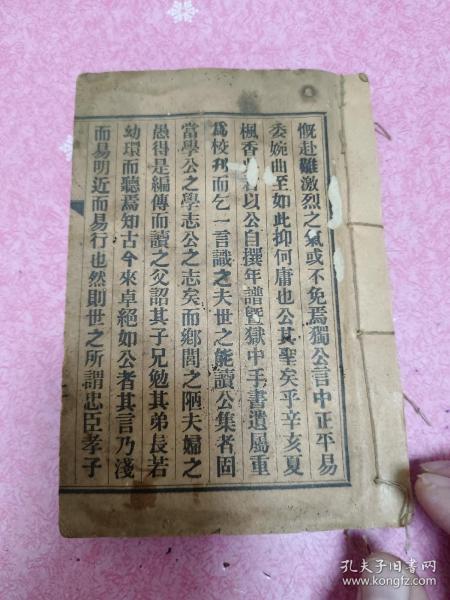 慨赴難激烈之氣或不免焉獨公言中正平易
委婉曲至如此抑何庸也公其聖矣乎辛亥夏
楓香以公自撰年譜暨獄中手書遺屬重
爲校刋而乞一言識之夫世之能讀公集者固
當學公之學志公之志矣而鄉閭之陋夫婦之
愚得是編傳而讀之父詔其子兄勉其弟長若
幼環而聽焉知古今來卓絕如公者其言乃淺
而易明近而易行也然則世之所謂忠臣孝子
孔夫子旧书网
www.kongfz.com